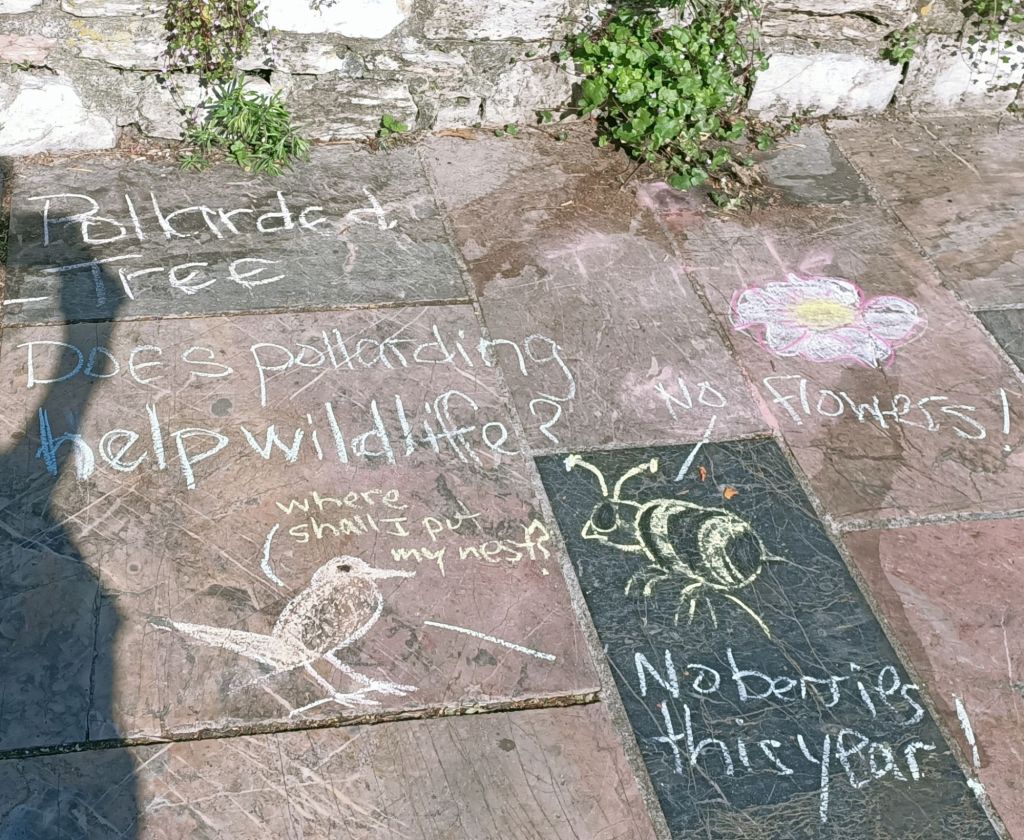 Pollarded
Tree
Does pollarding
help wildlife?
where
shall I put
my nest?
No flowers!
No berries
this year!